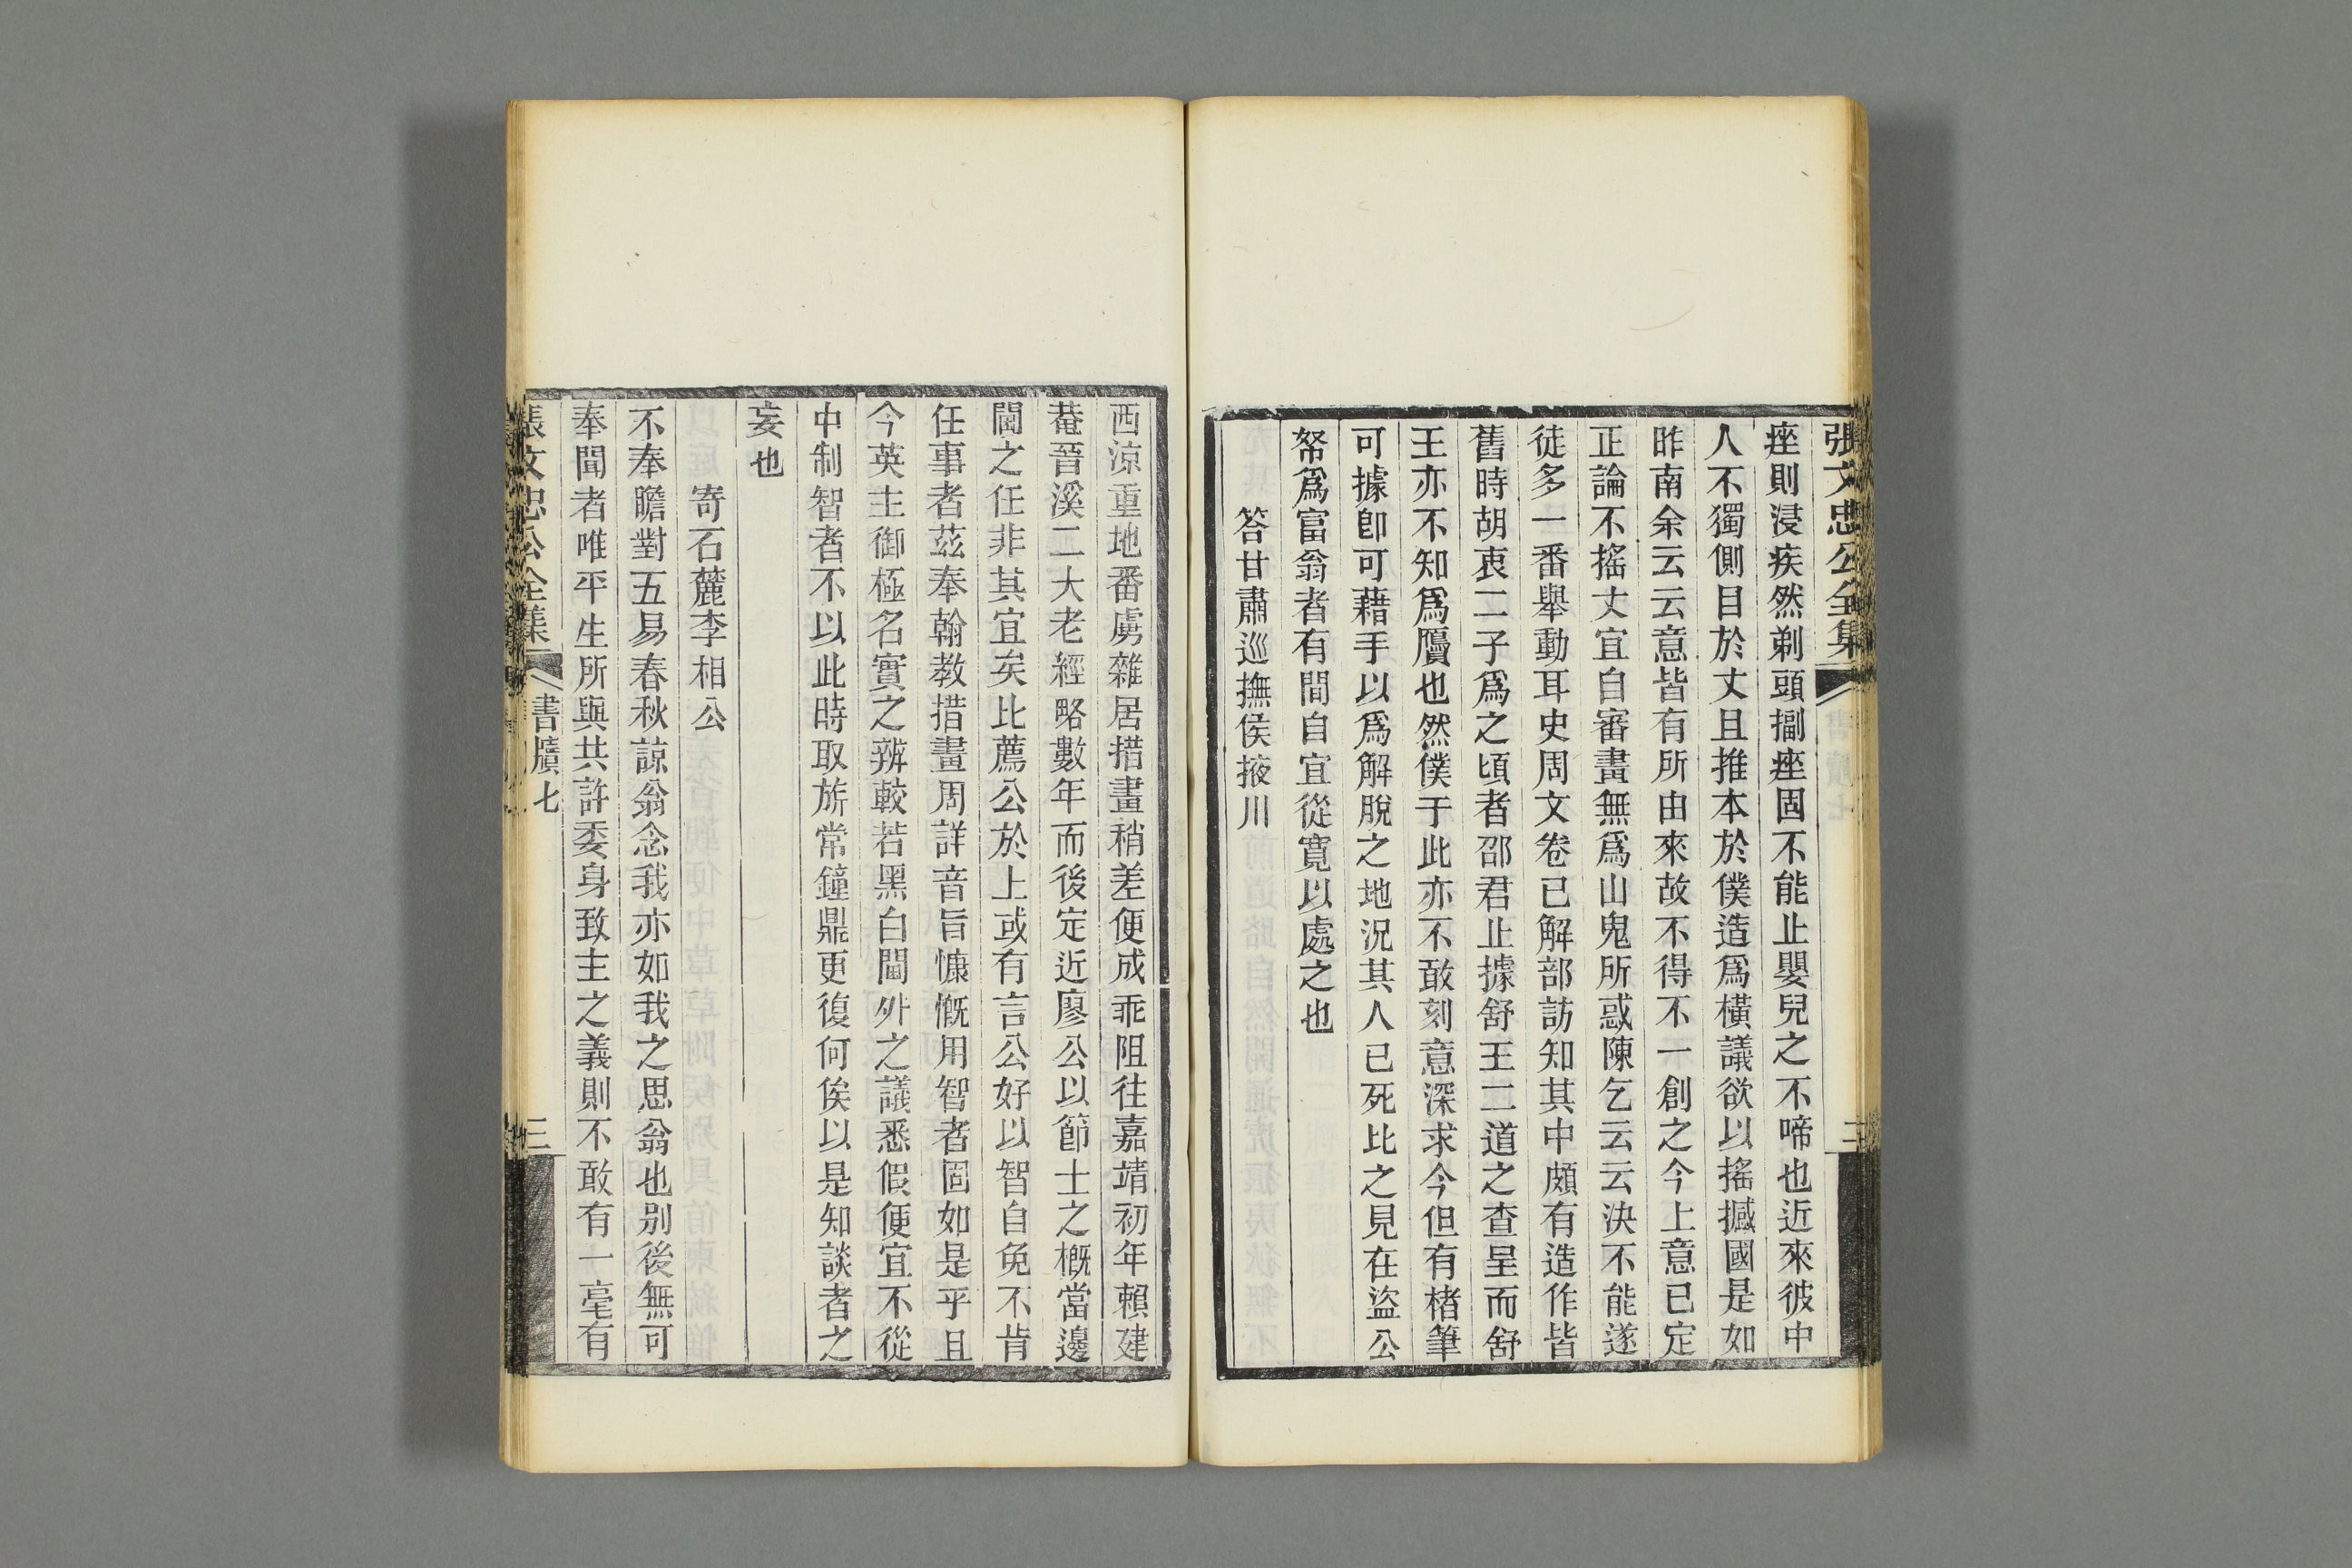 張文忠公全集
痤則浸疾然剃頭搧痤固不能止嬰兒之不啼也近來彼中
人不獨側目於丈且推本於僕造爲橫議欲以搖撼國是如
昨南余云云意皆有所由來故不得不一創之今上意已定
正論不搖丈宜自審畫無爲山鬼所惑陳乞云云決不能遂
徒多一番舉動耳史周文卷已解部訪知其中頗有造作皆
舊時胡衷二子爲之頃者邵君止據舒王二道之查呈而舒
王亦不知爲贗也然僕于此亦不敢刻意深求今但有楮筆
可據卽可藉手以爲解脫之地況其人已死比之見在盜公
帑爲富翁者有間自宜從寬以處之也
答甘肅巡撫侯掖川
西涼重地番虜雜居措畫稍差便成乖阻往嘉靖初年賴建
菴晉溪二大老經略數年而後定近廖公以節士之槪當邊
閫之任非其宜矣比薦公於上或有言公好以智自免不肯
任事者茲奉翰教措畫周詳音旨慷慨用智者固如是乎且
今英主御極名實之辨較若黑白閫外之議悉假便宜不從
中制智者不以此時取旂常鐘鼎更復何俟以是知談者之
妄也
寄石麓李相公
不奉瞻對五易春秋諒翁念我亦如我之思翁也別後無可
奉聞者唯平生所與共許委身致主之義則不敢有一毫有
張文忠公全集
書牘七
三